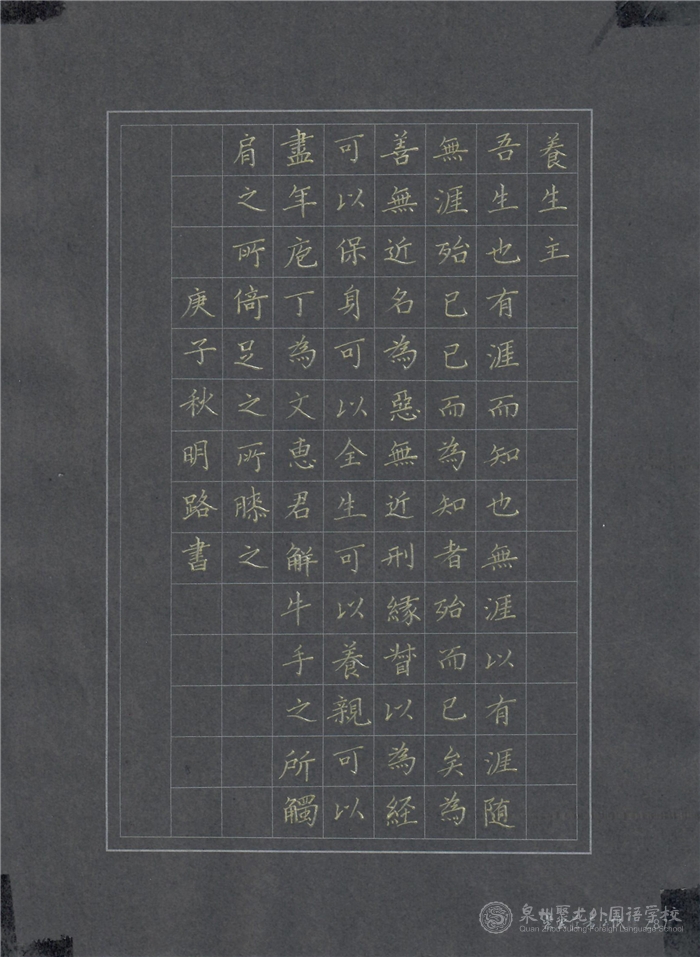 養生主
吾生也有涯而知也無涯以有涯随
無涯殆已已而為知者殆而已矣為
善無近名為惡無近刑縁督以為経
可以保身可以全生可以養親可以
盡年庖丁為文恵君解牛手之所觸
肩之所倚足之所膝之
庚子秋明路書
泉州聚龙外国语学校
Quan Zhou Julong Foreign Language School